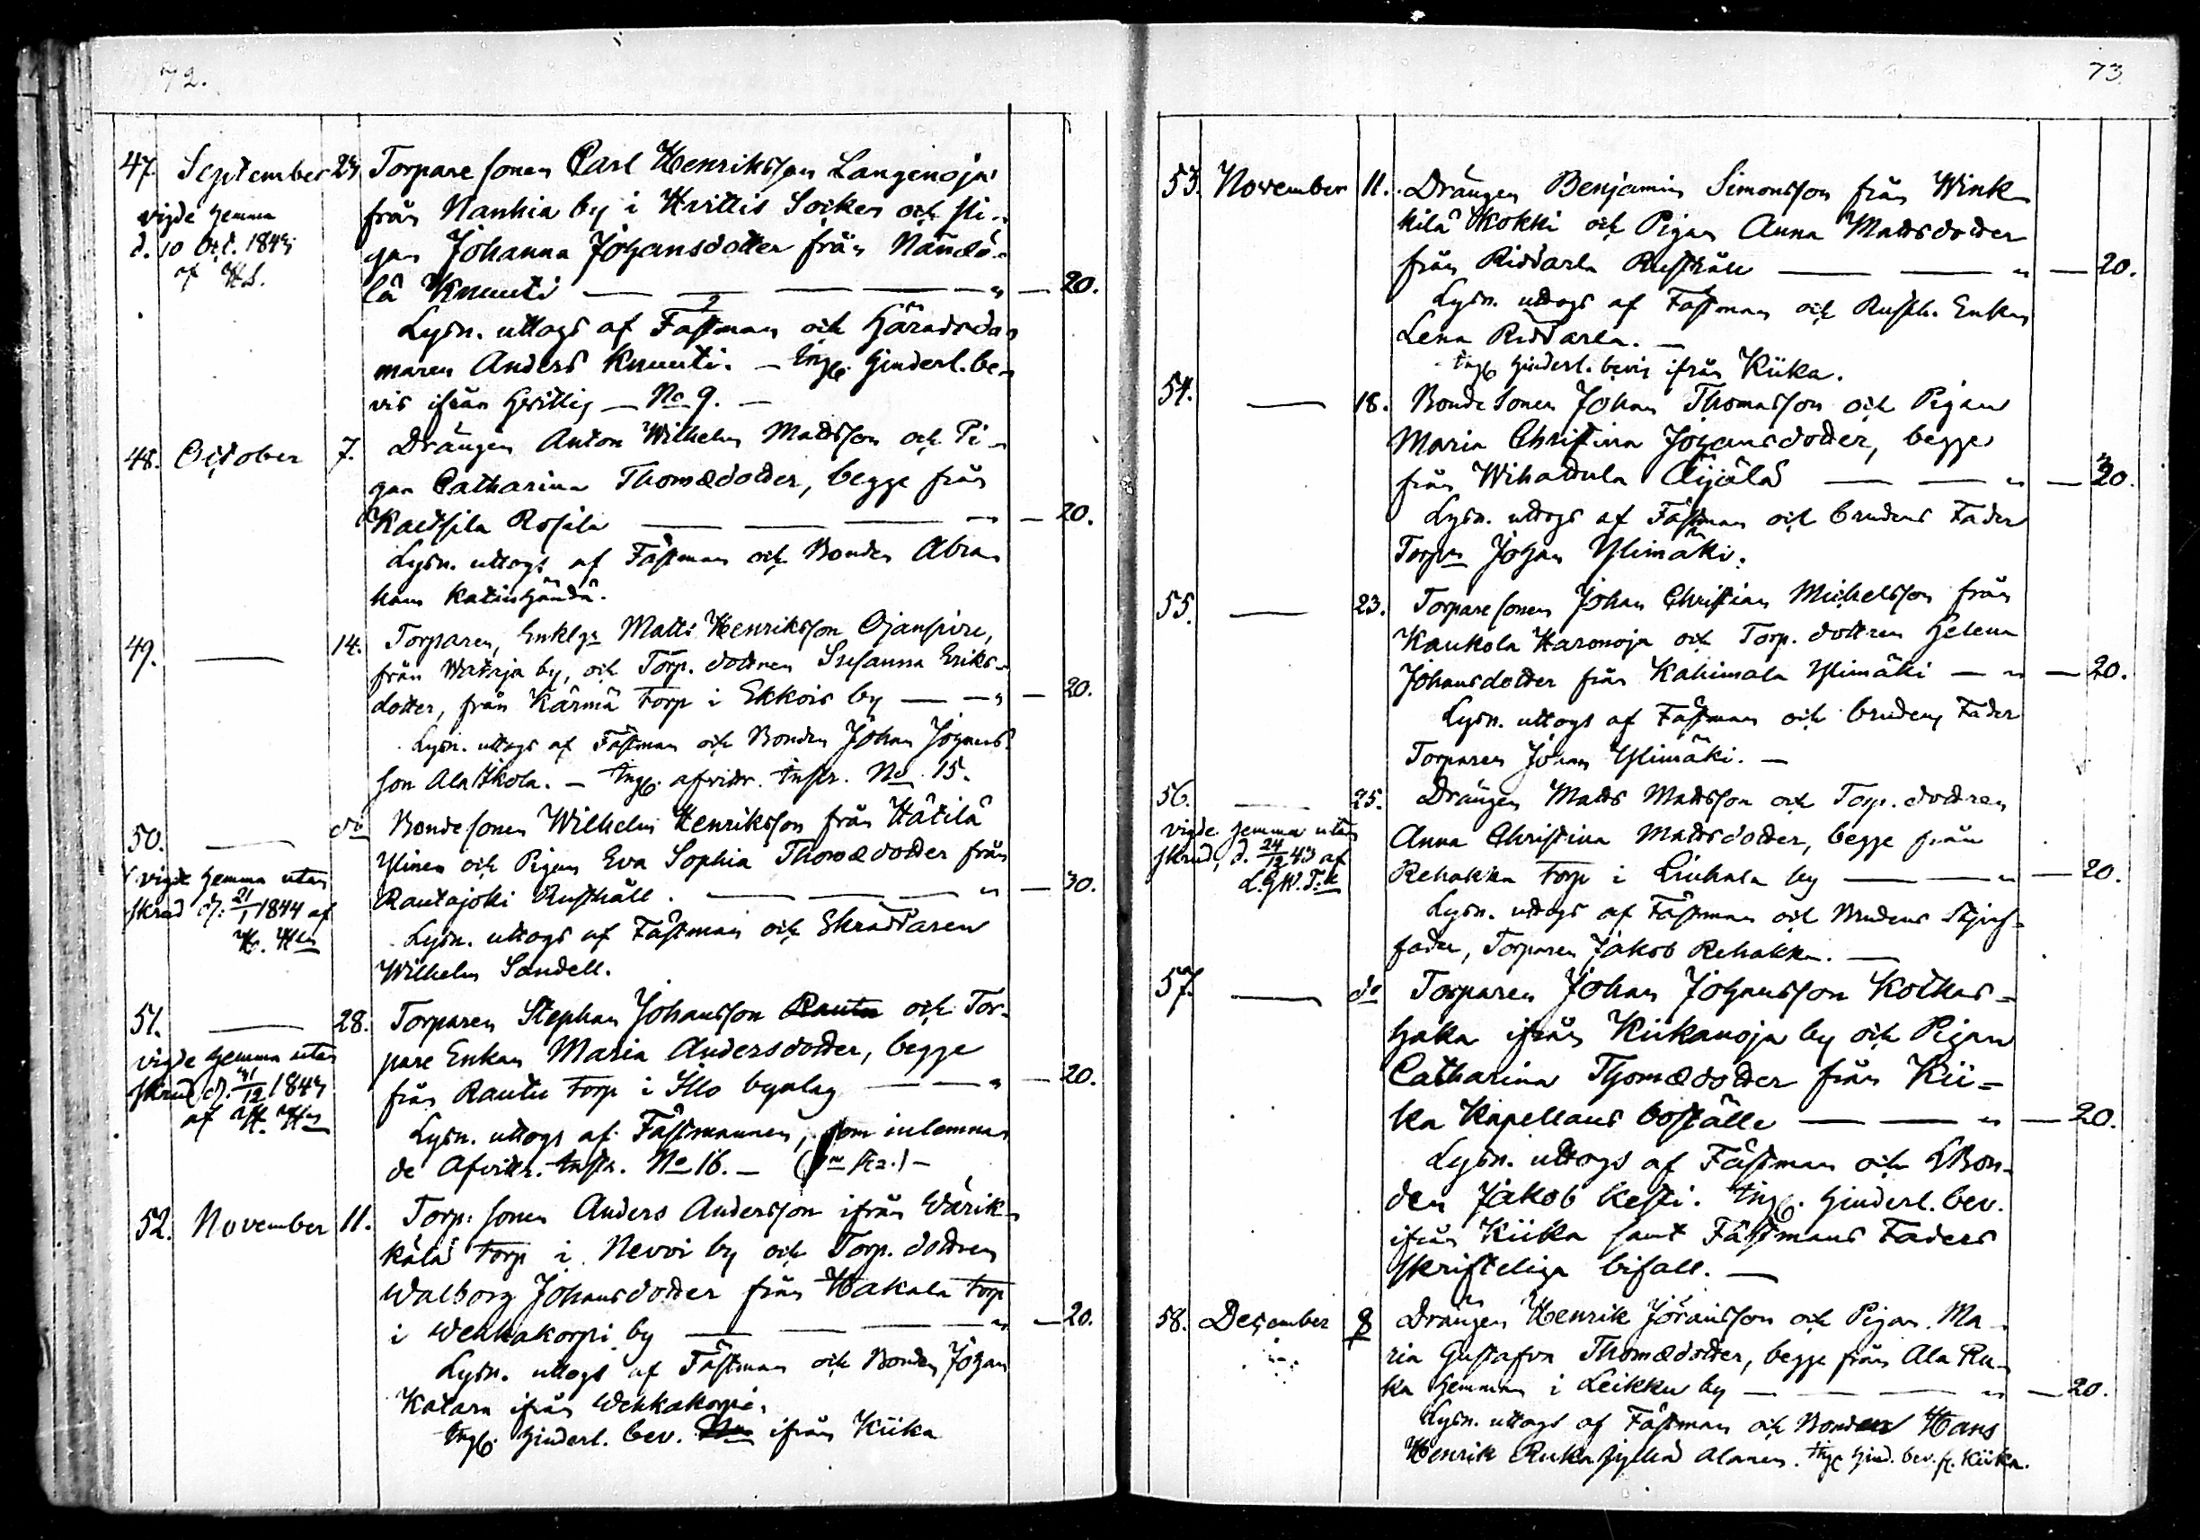 72.
47. September 24 Torpare sonen Carl Henriksson Langenoja
vigde hemma från Nanhia by i Hvittis Socken och Pi-
d. 10 Oct. 1843 gan Johanna Johansdotter från
af lä Knuuti — " — 20.
Lysn. uttogs af Fästman och Häradsdo
maren Anders Knuuti. — Ing. hinderl. be-
vis ifrån Hvittis — No 9. —
48. October 7. Drängen Anton Wilhelm Mattsson och Pi-
gan Catharina Thomædotter, begge från
Kaltsila Rosila — " — 20.
Lysn. uttogs af Fästman och Bonden Abra
ham Katinhändä.
49. — 14. Torparen, Enkl. Matts Henriksson
från by, och Torp. dottren Susanna Eriks-
dotter, från Kärmä torp i Ekkois by — " — 20.
Lysn. uttogs af Fästman och Bonden Johan Johans
son AlaIkola. — Ing. afvittr. Instr. No 15.
50. — do Bondesonen Wilhelm Henriksson från Kätilä
vigde hemma utan Ylinen och Pigan Eva Sophia Thomædotter från
skrud d. 21/1 1844 af Rautajoki Rusthåll. — " — 30.
Lysn. uttogs af Fästman och Skräddaren
Wilhelm Sandell.
51. — 28. Torparen Stephan Johansson Rautu och Tor-
vigde hemma utan pare Enkan Maria Andersdotter, begge
skrud d. 31/12 1843 från Rautu torp i Illo bynlag — " — 20.
af Lysn. uttogs af Fästmannen, som inlemna
de Afvittr. Instr. No 16. —
52. November 11. Torp. sonen Anders Andersson ifrån Wärik-
kälä torp i Nevvi by och Torp. dottren
Walborg Johansdotter från Hakala torp
i Wehkakorpi by — " — 20.
Lysn. uttogs af Fästman och Bonden Johan
Katara ifrån Wehkakorpi.
Ing. hinderl. bev. ifrån Kiika
73.
53. November 11. Drängen Benjamin Simonsson från Wink
kilä Kokki och Pigan Anna Mattsdotter
från Riddarla Rusthåll — " — 20.
Lysn. uttogs af Fästman och Rusth. Enkan
Lena Riddarla. —
Ing. hinderl. bevis ifrån Kiika.
54. — 18. Bonde Sonen Johan Thomasson och Pigan
Maria Christina Johansdotter, begge
från Wihattula Äijälä — " — 20.
Lysn. uttogs af Fästman och brudens Fader
Torpn Johan Ylimäki.
55. — 23. Torparesonen Johan Christian Michelsson från
Kaukola Haronoja och Torp. dottren Helena
Johansdotter från Kahimala Ylimäki — " — 20.
Lysn. uttogs af Fästman och brudens Fader
Torparen Johan Ylimäki. —
56. — 25. Drängen Matts Mattsson och Torp. dottren
vigde hemma utan Anna Christina Mattsdotter, begge från
skrud, d. 24/12 43 af Rehakka torp i Liuhala by — " — 20.
Lysn. uttogs af Fästman och Brudens Styf-
fader, Torparen Jakob Rehakka. —
57. — do Torparen Johan Johansson Kothas-
haka ifrån Kiikanoja by och Pigan
Catharina Thomædotter från Kii-
ka Kapellans boställe — " — 20.
Lysn. uttogs af Fästman och Bon-
den Jakob Kesti. Ing. hinderl. bev.
ifrån Kiika samt Fästmans Faders
skriftliga bifall. —
58. December 9 Drängen Henrik Göransson och Pigan Ma-
ria Gustafva Thomædotter, begge från Ala Ru-
ka hemman i Leikku by — " — 20.
Lysn. uttogs af Fästman och Bonden Hans
Henrik Alanen. Ing. hind. bev. fr. Kiika.